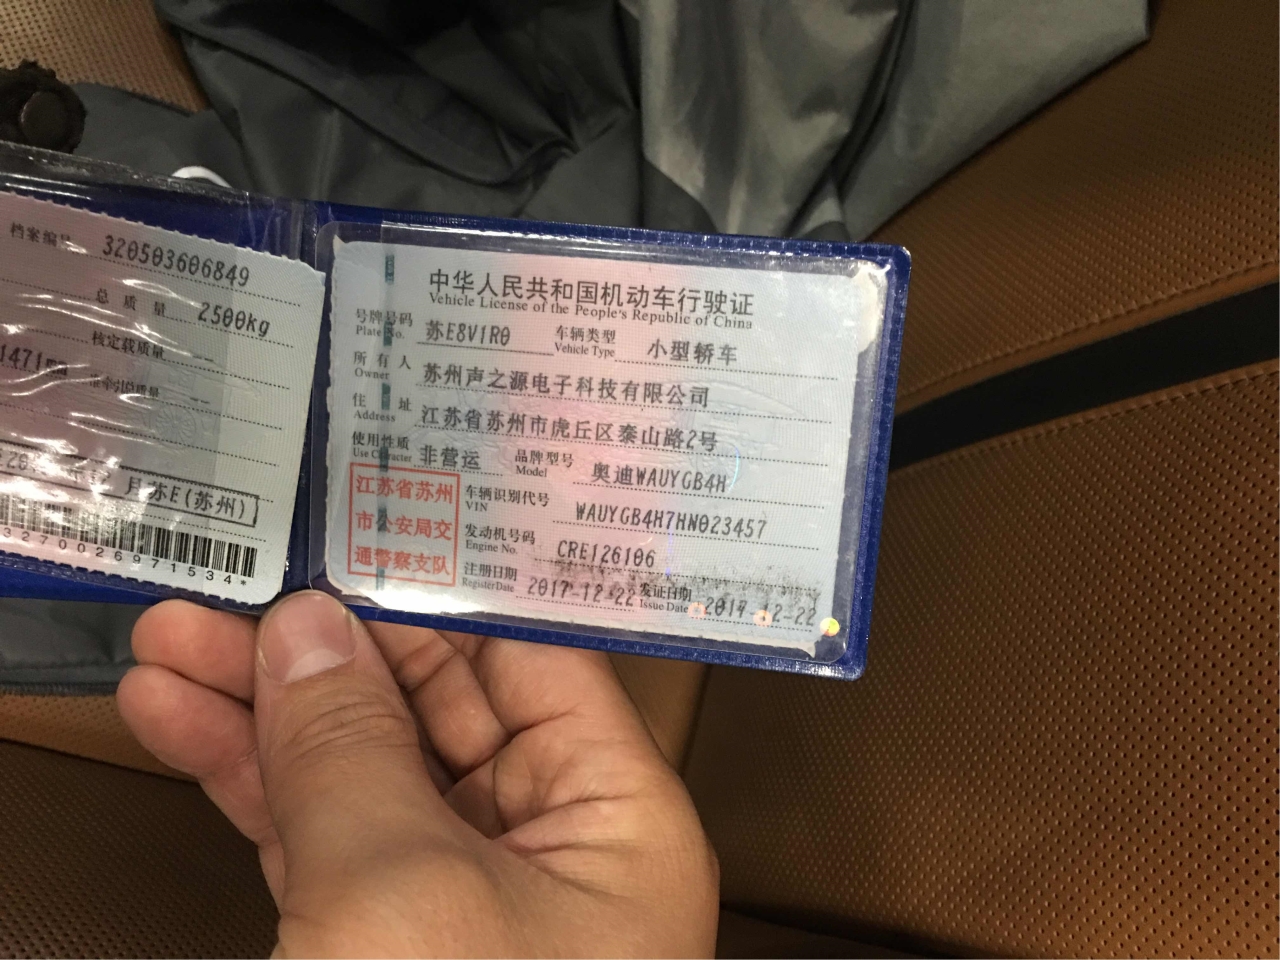 档案编号 320503606849
总质量 2500kg
核定载质量 --
1471mm 准牵引总质量 --
月苏E(苏州)
3270026971534*
中华人民共和国机动车行驶证
Vehicle License of the People's Republic of China
号牌号码 苏E8V1R0 车辆类型 小型轿车
Plate No. Vehicle Type
所有人 苏州声之源电子科技有限公司
Owner
住址 江苏省苏州市虎丘区泰山路2号
Address
使用性质 非营运 品牌型号 奥迪WAUYGB4H
Use Character Model
江苏省苏州
市公安局交
通警察支队
车辆识别代号 WAUYGB4H7HN023457
VIN
发动机号码 CRE126106
Engine No.
注册日期 2017-12-22 发证日期 2017-12-22
Register Date Issue Date